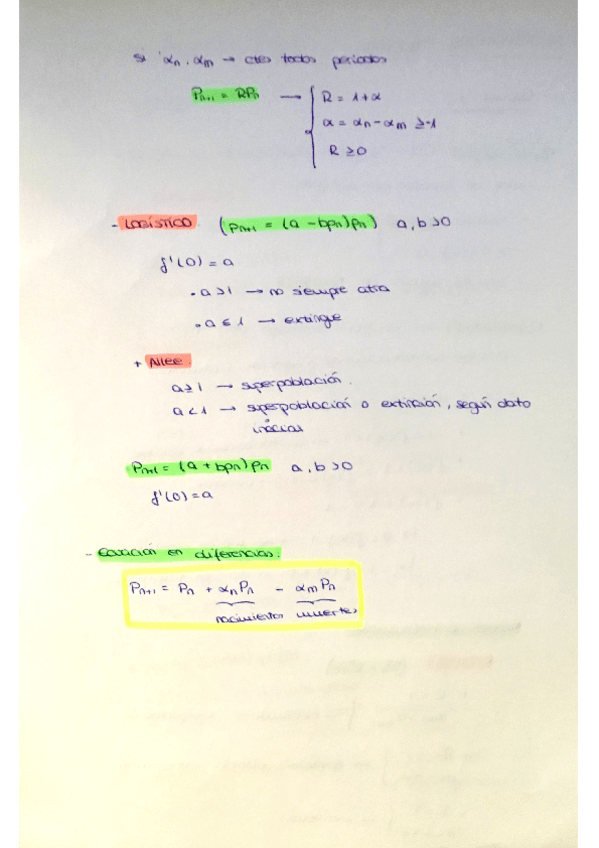 Si αn, αm → ctes todos periodos
Pn+1 = RPn → { R = 1+α
α = αn - αm ≥ -1
R ≥ 0
- LOGÍSTICO (Pn+1 = (a - bpn)pn) a, b > 0
f'(0) = a
• a > 1 → no siempre
• a ≤ 1 → extingue
+ Allee.
a ≥ 1 → superpoblación.
a < 1 → superpoblación o extinción, según dato
Pn+1 = (a + bpn)pn a, b > 0
f'(0) = a
- Ecuación en diferencias:
Pn+1 = Pn + αnPn - αmPn
nacimientos muertes